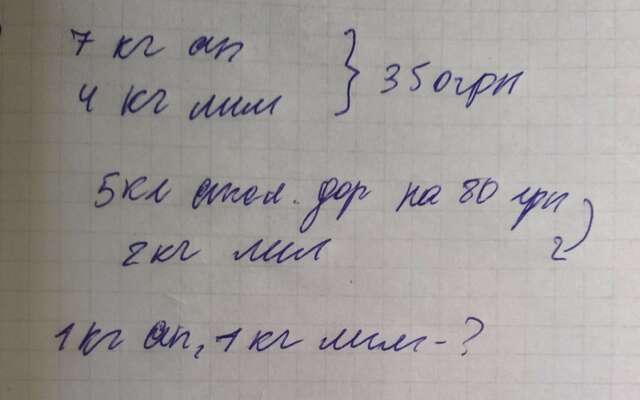 7 кг ап
4 кг лим } 350грн
5кг апел. дор на 80 грн
2кг лим
1кг ап, 1кг лим - ?